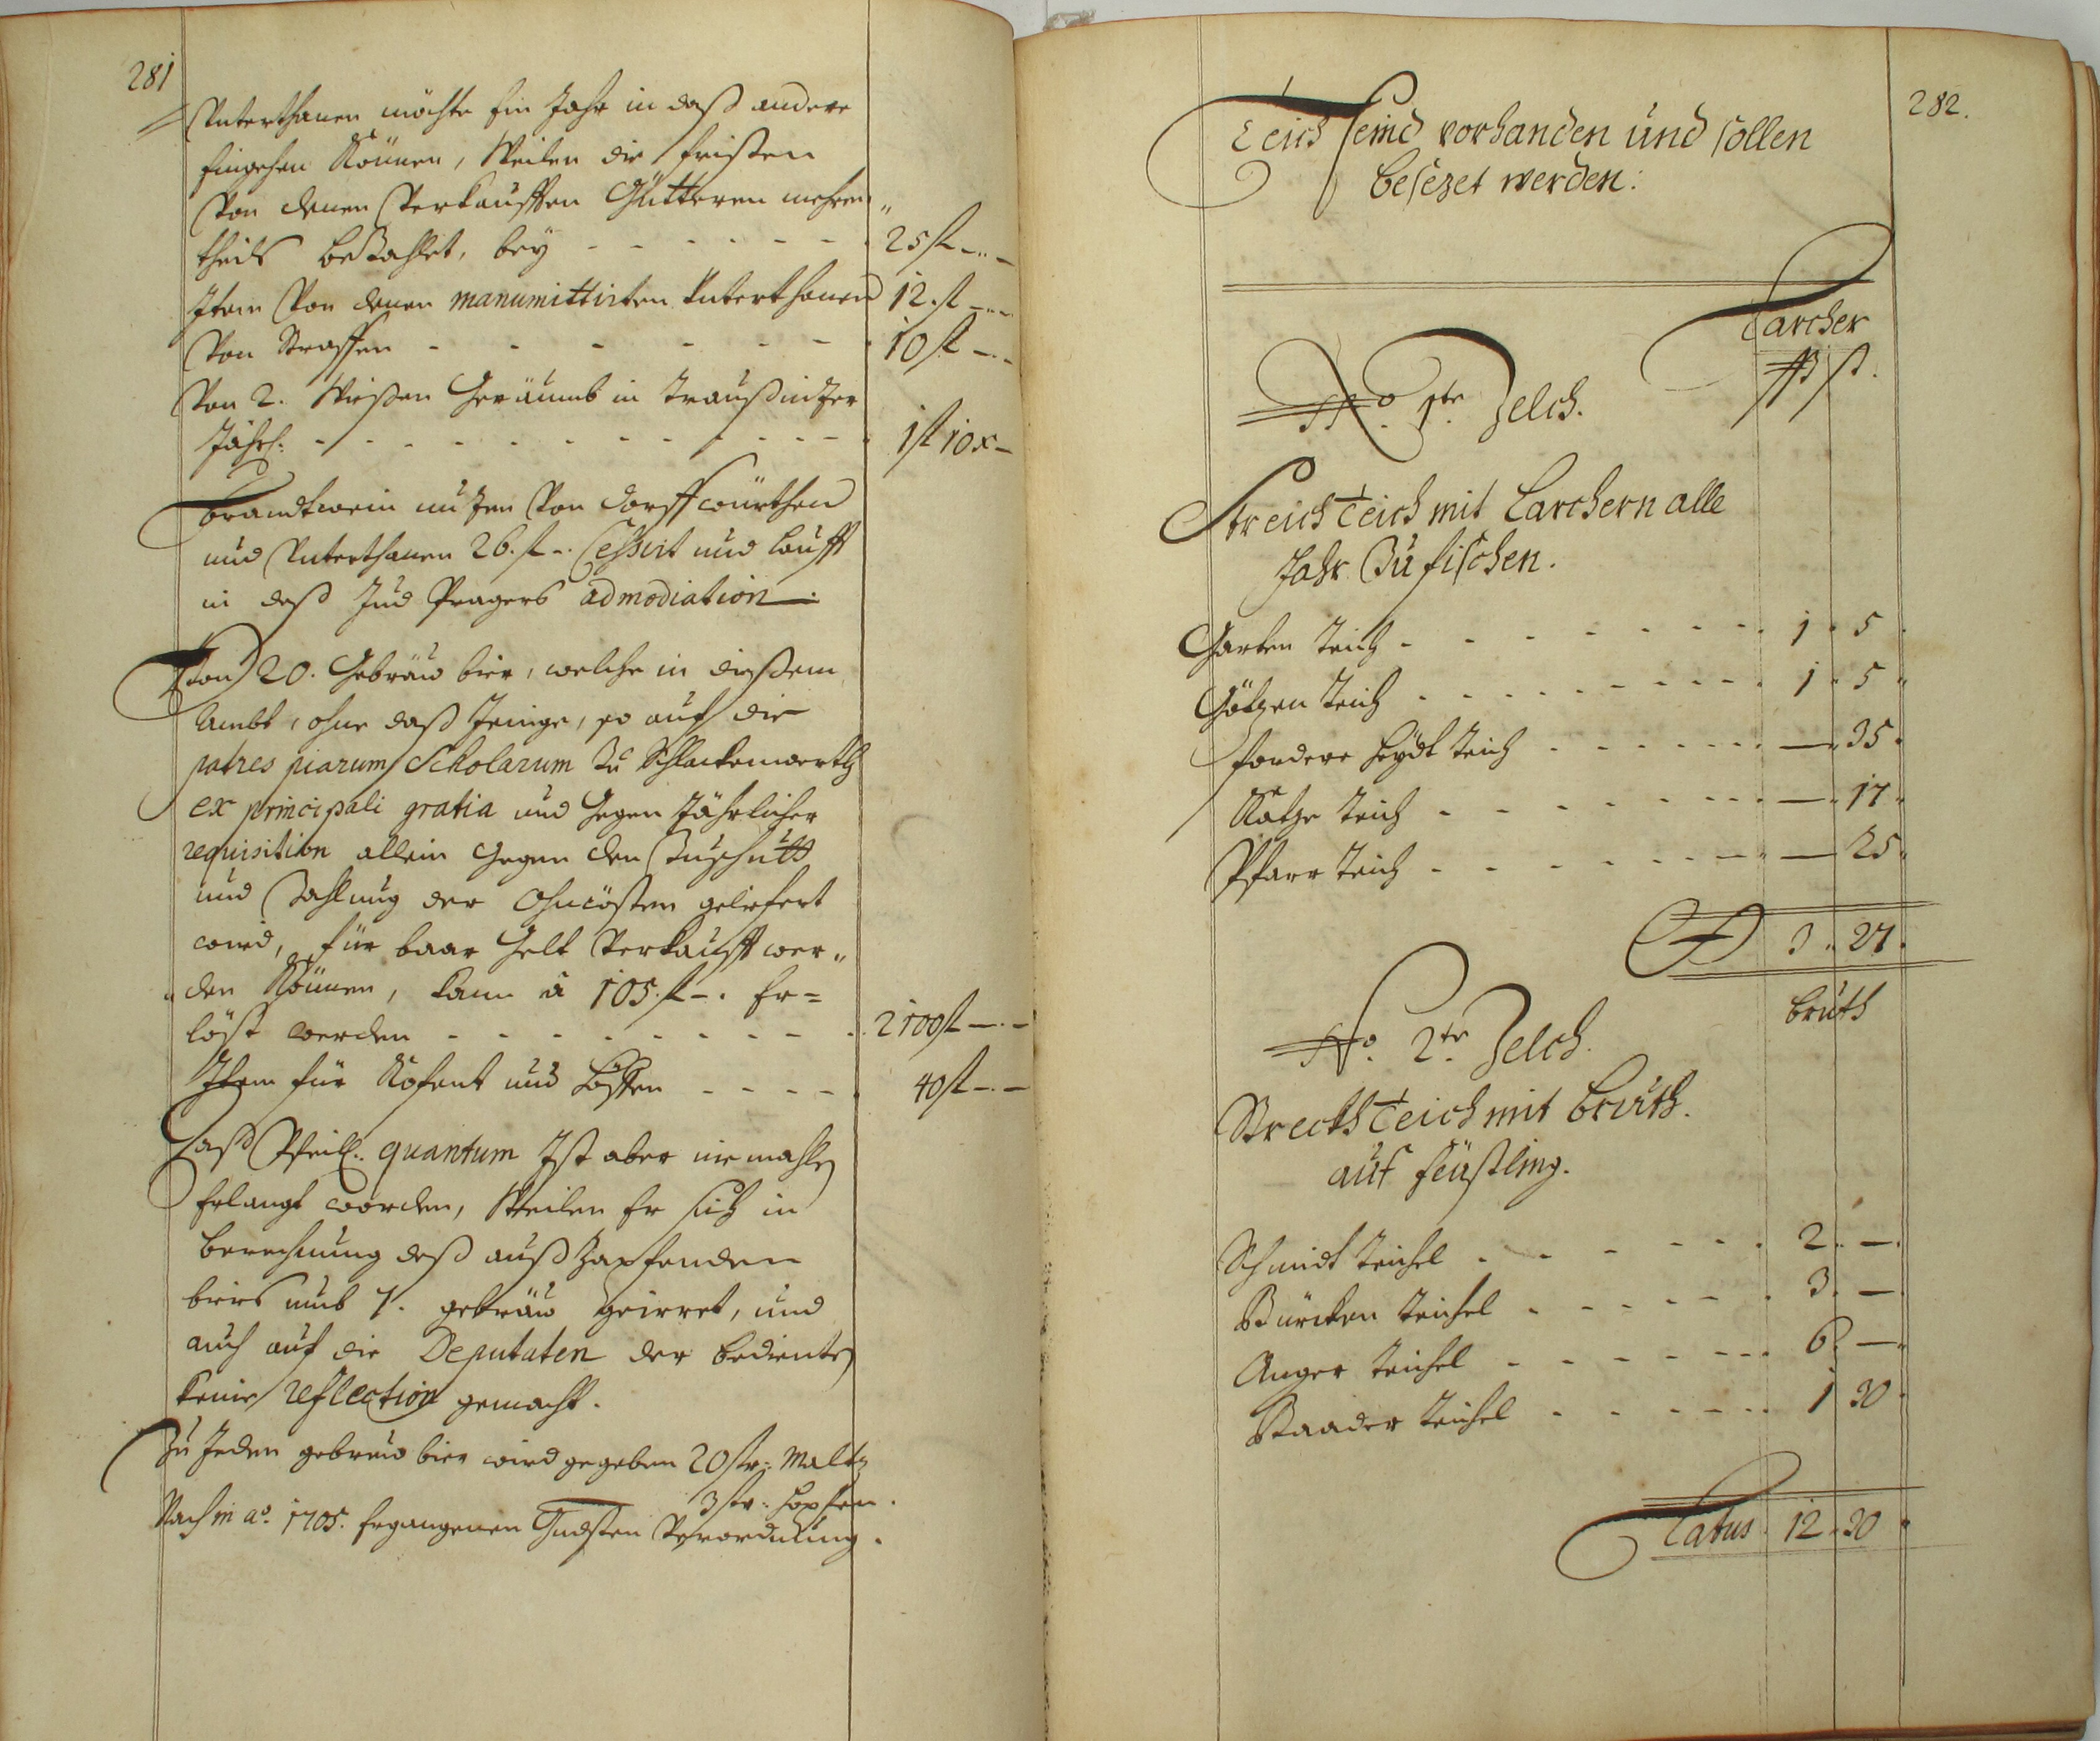 281
Unterthanen möchte ein Jahr in daß andere
eingehen können, Weilen die fristen
Von denen Verkaufften Güttern mehren„
theils bezahlet, bey - - - - - - 25 fl -.-
Item Von denen manumittirten Unterthanen 12. fl -.-
Von Straffen - - - - - - 10 fl -.-
Von 2. Wießen Geräumb in
Jährl: - - - - - - - - - - 1 fl 10 x -
Brandtwein nuzen Von dorff würthen
und Unterthanen 26. fl -. Cessirt und laufft
in deß Jud Pragers admodiation.
Von 20. Gebräu bier, welche in dießem
Ambt, ohne daß Jenige, so auf die
patres piarum Scholarum zu Schlackenwerth
ex principali gratia und gegen Jährlicher
requisition allein gegen den Zuschutt
und Zahlung der Ohncösten geliefert
wird, für baar Gelt Verkaufft wer„
„den können, kann â 105. fl -. Er=
löst werden - - - - - - - - 2100 fl -.-
Item für Kofent und Höffen - - - - 40 fl -.-
Daß Weill. quantum Ist aber niemahls
Erlangt worden, Weilen Er sich in
berechnung deß auß Zapfenden
biers umb 7. gebräu geirret, und
auch auf die Deputaten der bedienten
keine reflection gemacht.
Zu Jeden gebräu bier wird gegeben 20 str: Maltz
3 str: hopfen.
Nach in aō. 1705. Ergangenen Gndsten Verordnung.
282.
Teich seind vorhanden und sollen
besezet werden:
Karpfer
ß ß.
No. 1te Zelch.
Streich Teich mit Karchern alle
Jahr Zu fischen.
Garten Teich - - - - - - - - 1 . 5 .
Götzen Teich - - - - - - - - 1 . 5 .
fordere heydt Teich - - - - - - — . 35 .
Katze Teich - - - - - - - — . 17 .
Pfarr Teich - - - - - - - — 25 .
3 . 27 .
bruth
No. 2te Zelch.
Streckh Teich mit bruth.
auf feüstling.
Schmidt teichel - - - - - - 2 . — .
Bürcken teichel - - - - - - 3 . —
Anger teichel - - - - - - 6 . — .
Baader teichel - - - - - - 1 30 .
Latus 12 . 30 .